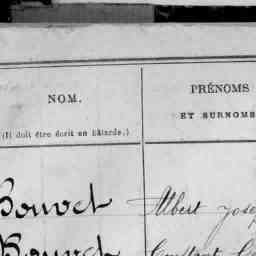 NOM.
PRÉNOMS
ET SURNOMS
(Il doit être écrit en bâtarde.)
Bouvet Albert Jose
Bouvet Constant